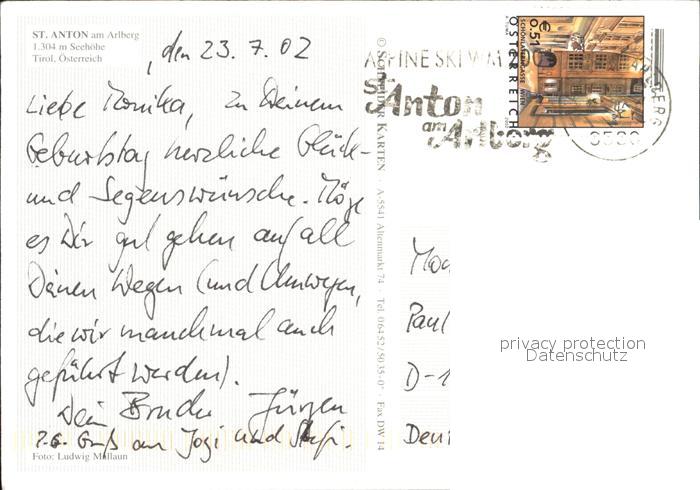 ST. ANTON am Arlberg
1.304 m Seehöhe
Tirol, Österreich
, den 23.7.02
Liebe Monika, zu Deinem
Geburtstag herzliche Glück-
und Segenswünsche. Möge
es Dir gut gehen auf all
Deinen Wegen (und Umwegen,
die wir manchmal auch
geführt werden).
Dein Bruder Jürgen
P.S. Gruß an Jogi und Steffi.
Foto: Ludwig Mallaun
KARTEN · A-5541 Altenmarkt 74 · Tel. 06452/5035-0* · Fax DW 14
ALPINE SKI WM
St. Anton
am Arlberg
€ 0,51
SCHÖNLATERNGASSE WIEN
ÖSTERREICH
ARLBERG
6580
Paul
D-1
privacy protection
Datenschutz